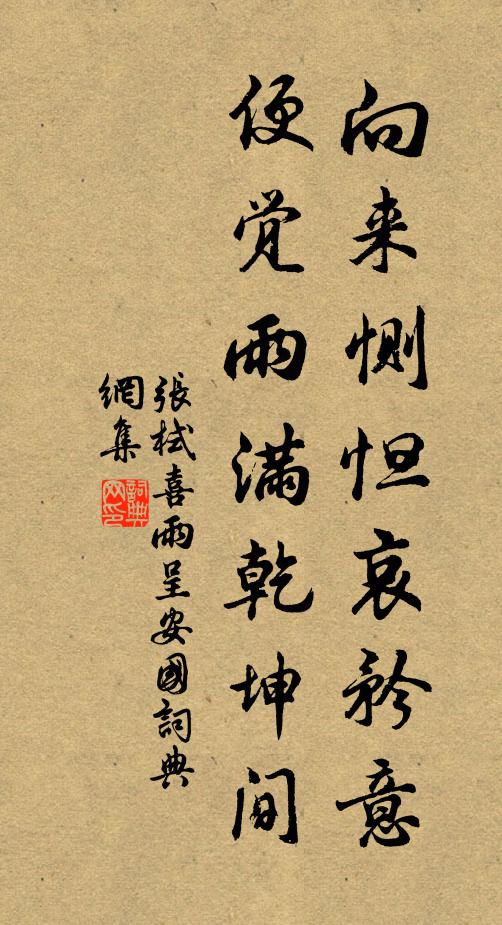 向来恻怛哀矜意
便觉雨满乾坤间
張栻喜雨呈安國詞典
網集
詞典
网印